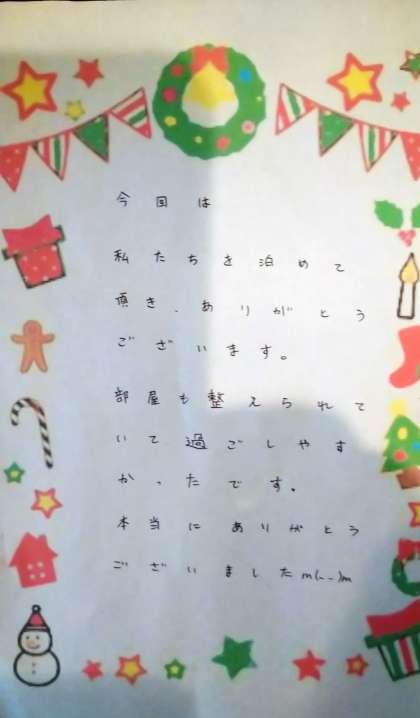 今回は
私たちを泊めて
頂き、ありがとう
ございます。
部屋も整えられて
いて過ごしやす
かったです。
本当にありがとう
ございましたm(--)m